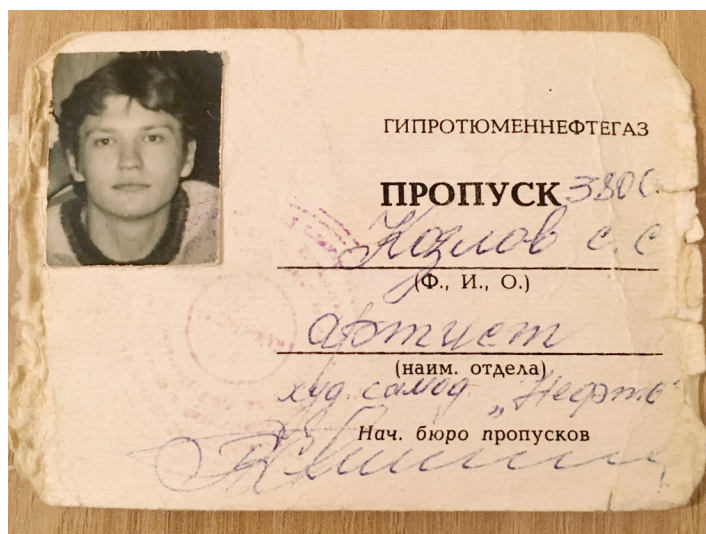 ГИПРОТЮМЕННЕФТЕГАЗ
ПРОПУСК 380
Козлов С. С
(Ф., И., О.)
артист
(наим. отдела)
худ. самод. „Нефть"
Нач. бюро пропусков